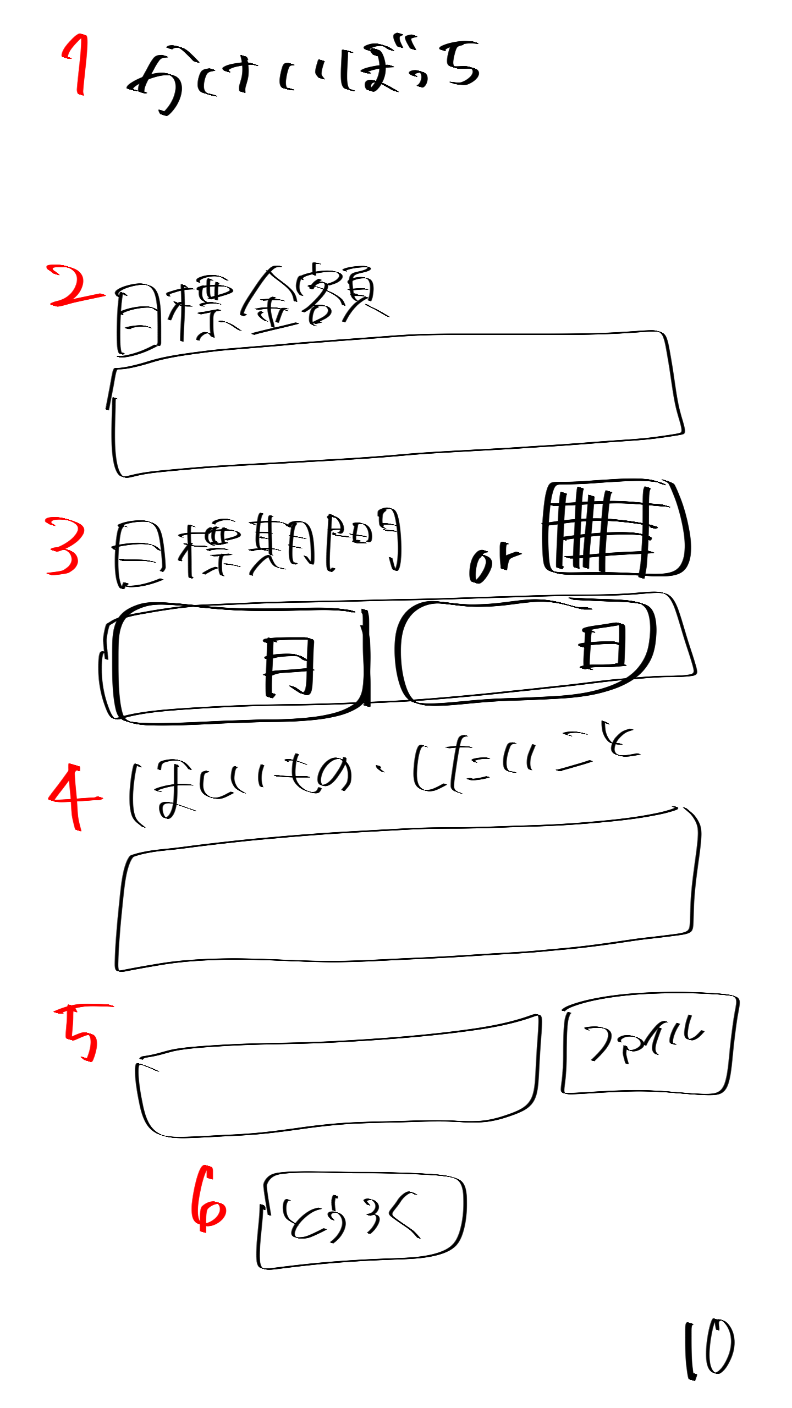 1 かけいぼっち
2 目標金額
3 目標期間 or
月 日
4 ほしいもの・したいこと
5 ファイル
6 とうろく
10